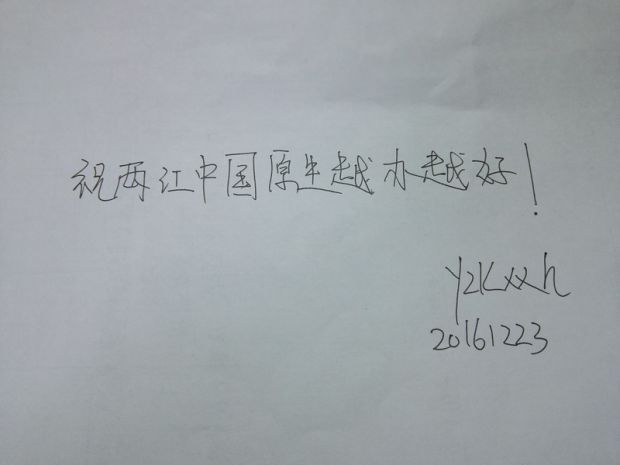 祝两江中国原生越办越好！
yzkxxh
20161223